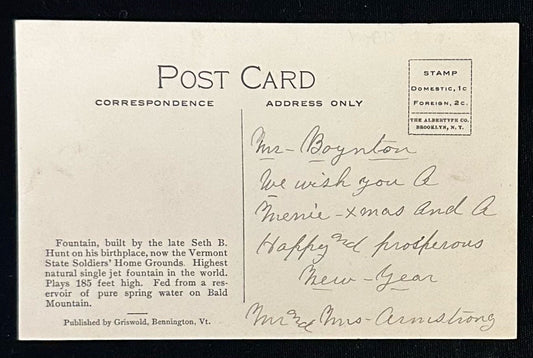 POST CARD
CORRESPONDENCE
ADDRESS ONLY
STAMP
DOMESTIC, 1c
FOREIGN, 2c.
THE ALBERTYPE CO.
BROOKLYN, N. Y.
Mr - Boynton
We wish you A
Merrie - xmas And A
Happy nd prosperous
New - Year
Mr nd Mrs - Armstrong
Fountain, built by the late Seth B.
Hunt on his birthplace, now the Vermont
State Soldiers' Home Grounds. Highest
natural single jet fountain in the world.
Plays 185 feet high. Fed from a res-
ervoir of pure spring water on Bald
Mountain.
Published by Griswold, Bennington, Vt.